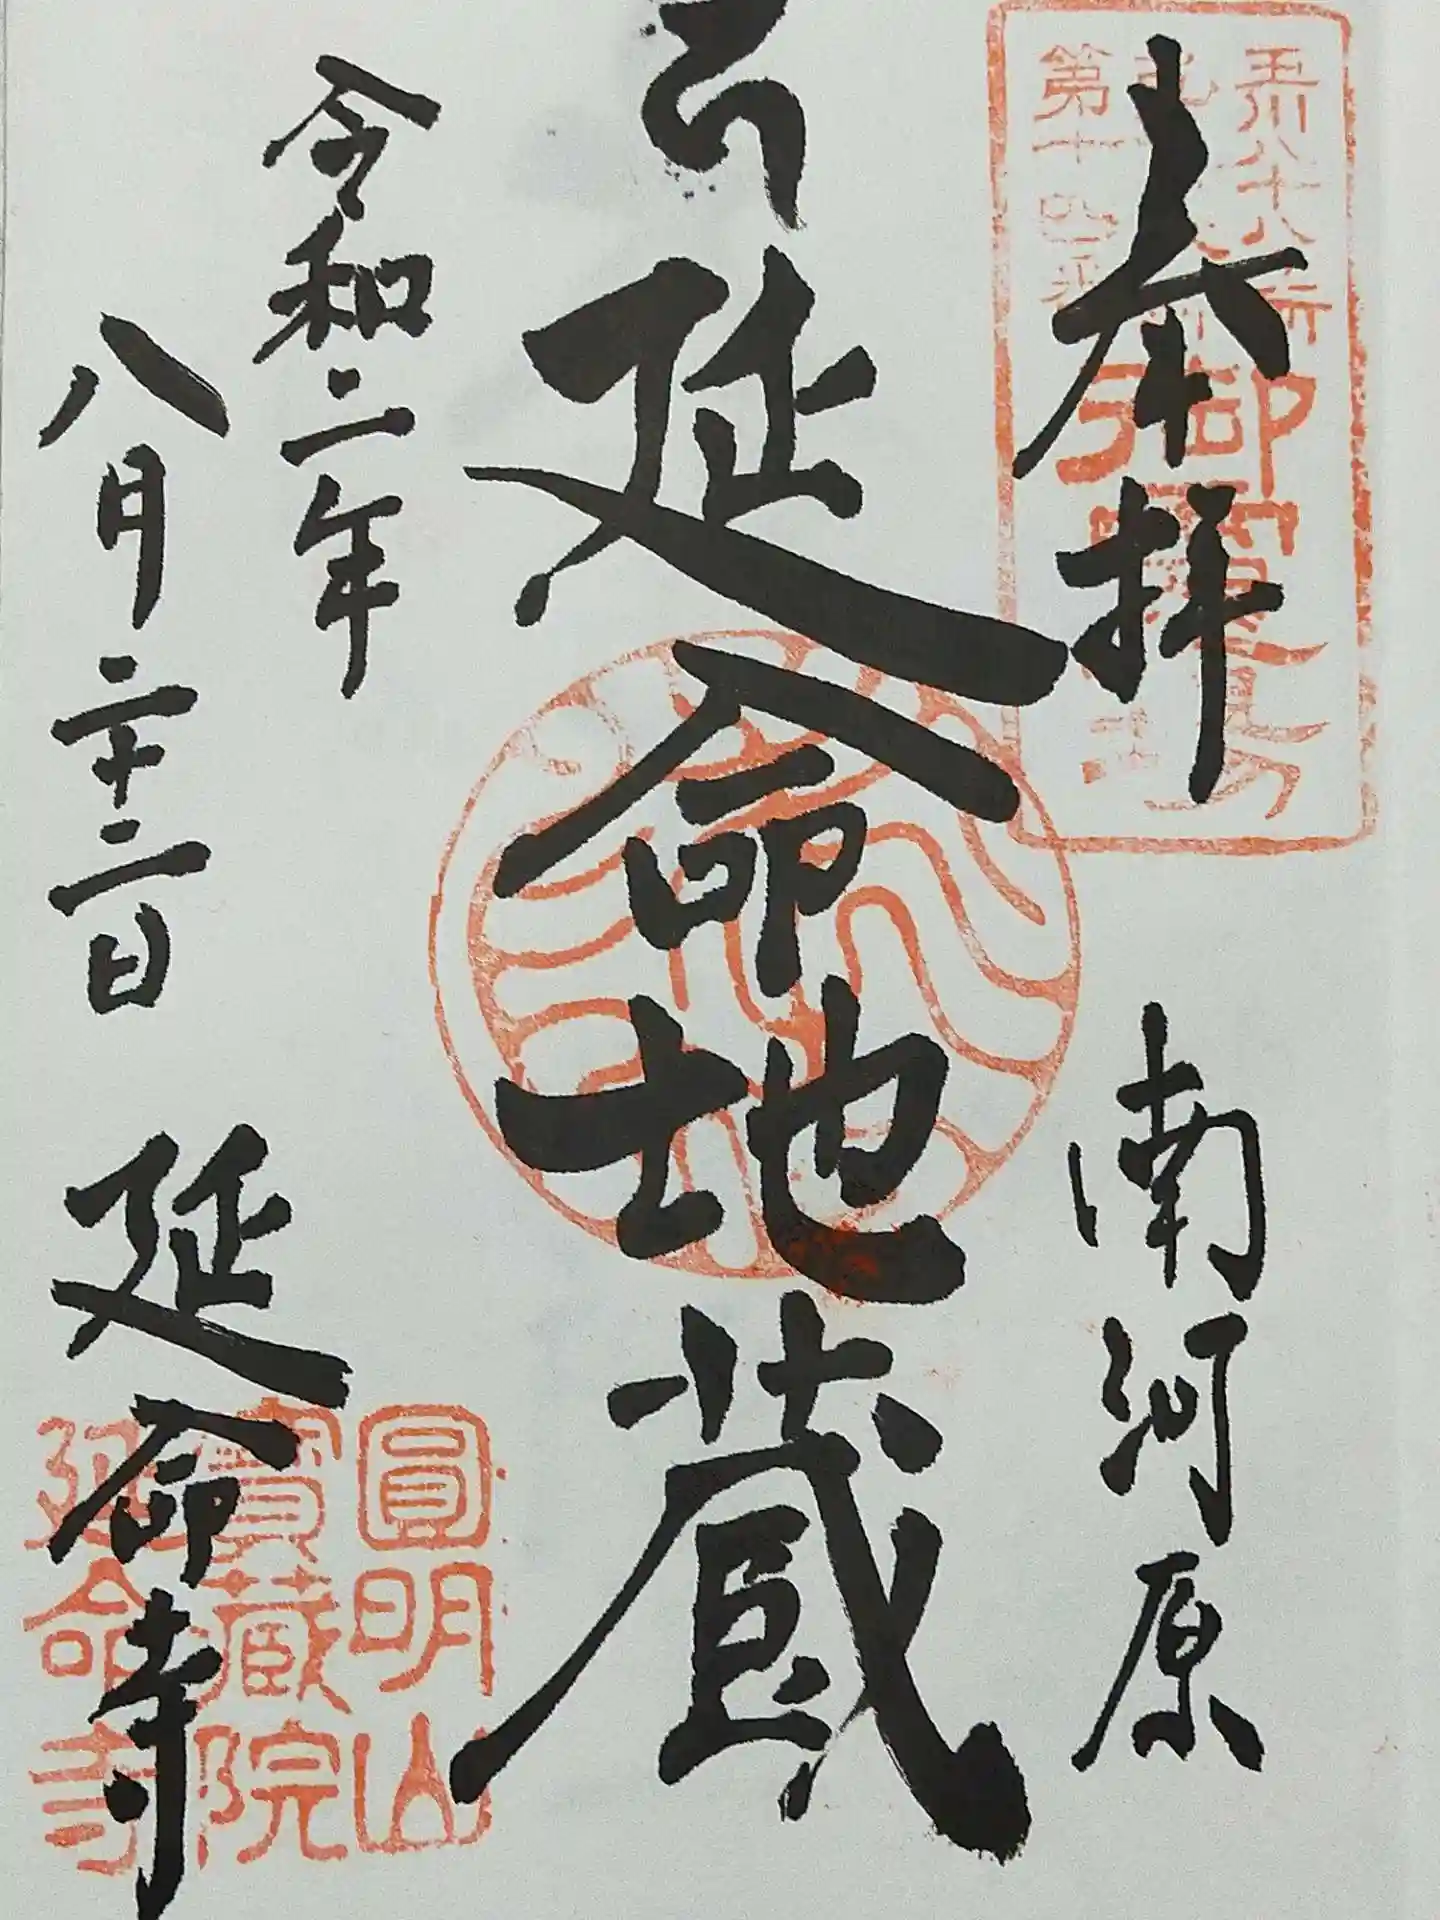 奉拝
南河原
延命地蔵
令和二年
八月二十二日
延命寺
第十四番
御霊場
圓明山
寶蔵院
延命寺